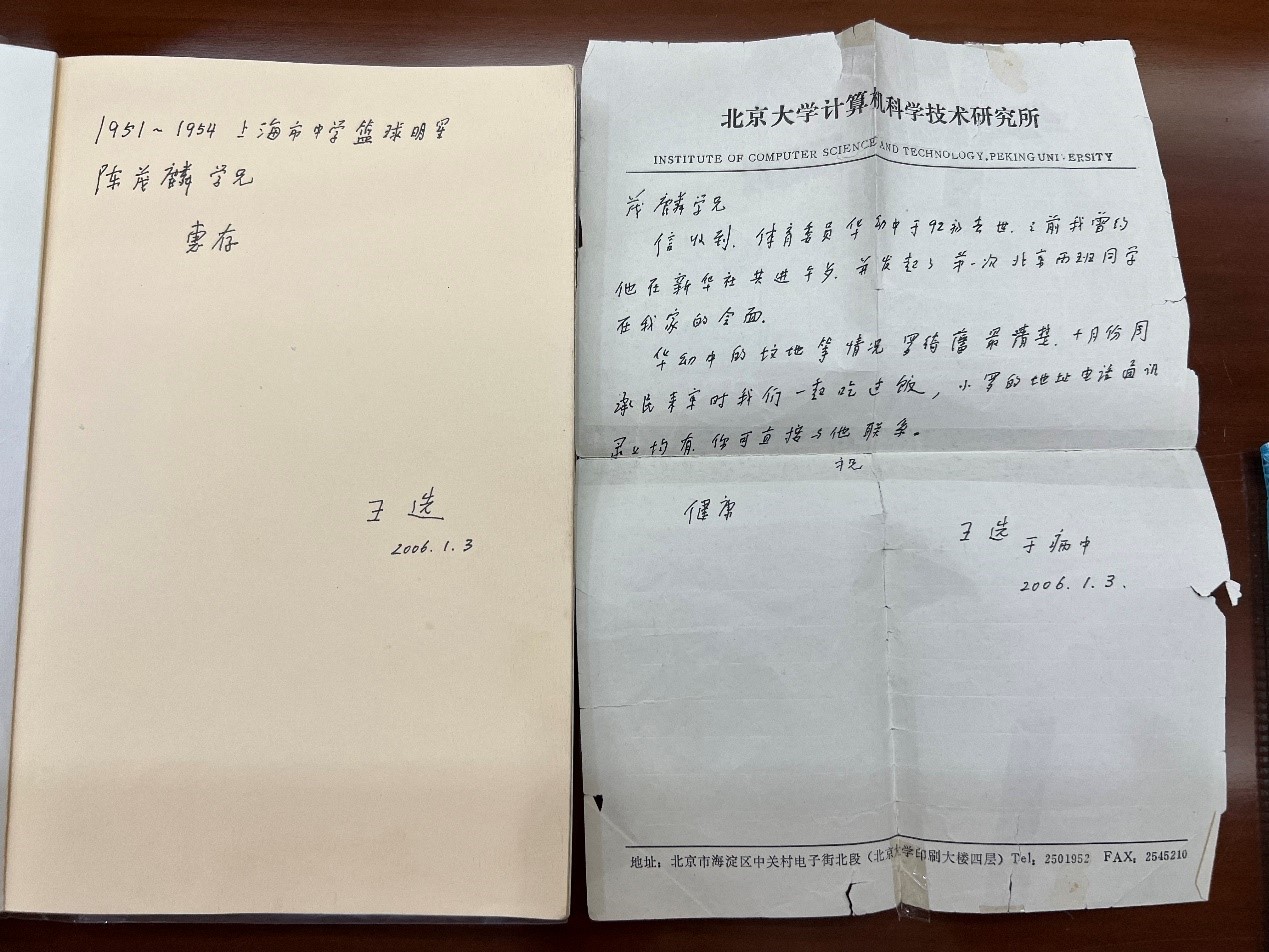 1951~1954 上海市中学篮球明星
陈茂麟学兄
惠存
王选
2006.1.3
北京大学计算机科学技术研究所
INSTITUTE OF COMPUTER SCIENCE AND TECHNOLOGY,PEKING UNIVERSITY
茂麟学兄
信收到. 体育委员华幼中于92初去世. 之前我曾约
他在新华社共进午点. 并发起了第一次北京两班同学
在我家的会面.
华幼中的坟地等情况罗绮蕾最清楚. 十月份周
承民来京时我们一起吃过饭, 小罗的地址电话通讯
录上均有. 你可直接与他联系。
祝
健康
王选 于病中
2006.1.3.
地址: 北京市海淀区中关村电子街北段 (北京大学印刷大楼四层) Tel: 2501952 FAX: 2545210